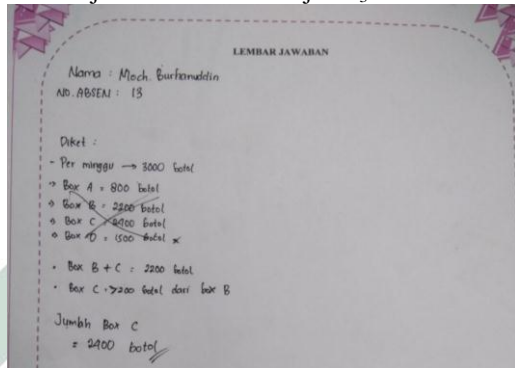 LEMBAR JAWABAN
Nama : Moch. Burhanuddin
NO. ABSEN : 13
Diket :
- Per minggu → 3000 botol
→ Box A = 800 botol
→ Box B = 2200 botol
→ Box C = 2400 botol
→ Box D = 1500 botol x
• Box B + C = 2200 botol
• Box C = >200 botol dari box B
Jumlah Box C
= 2400 botol